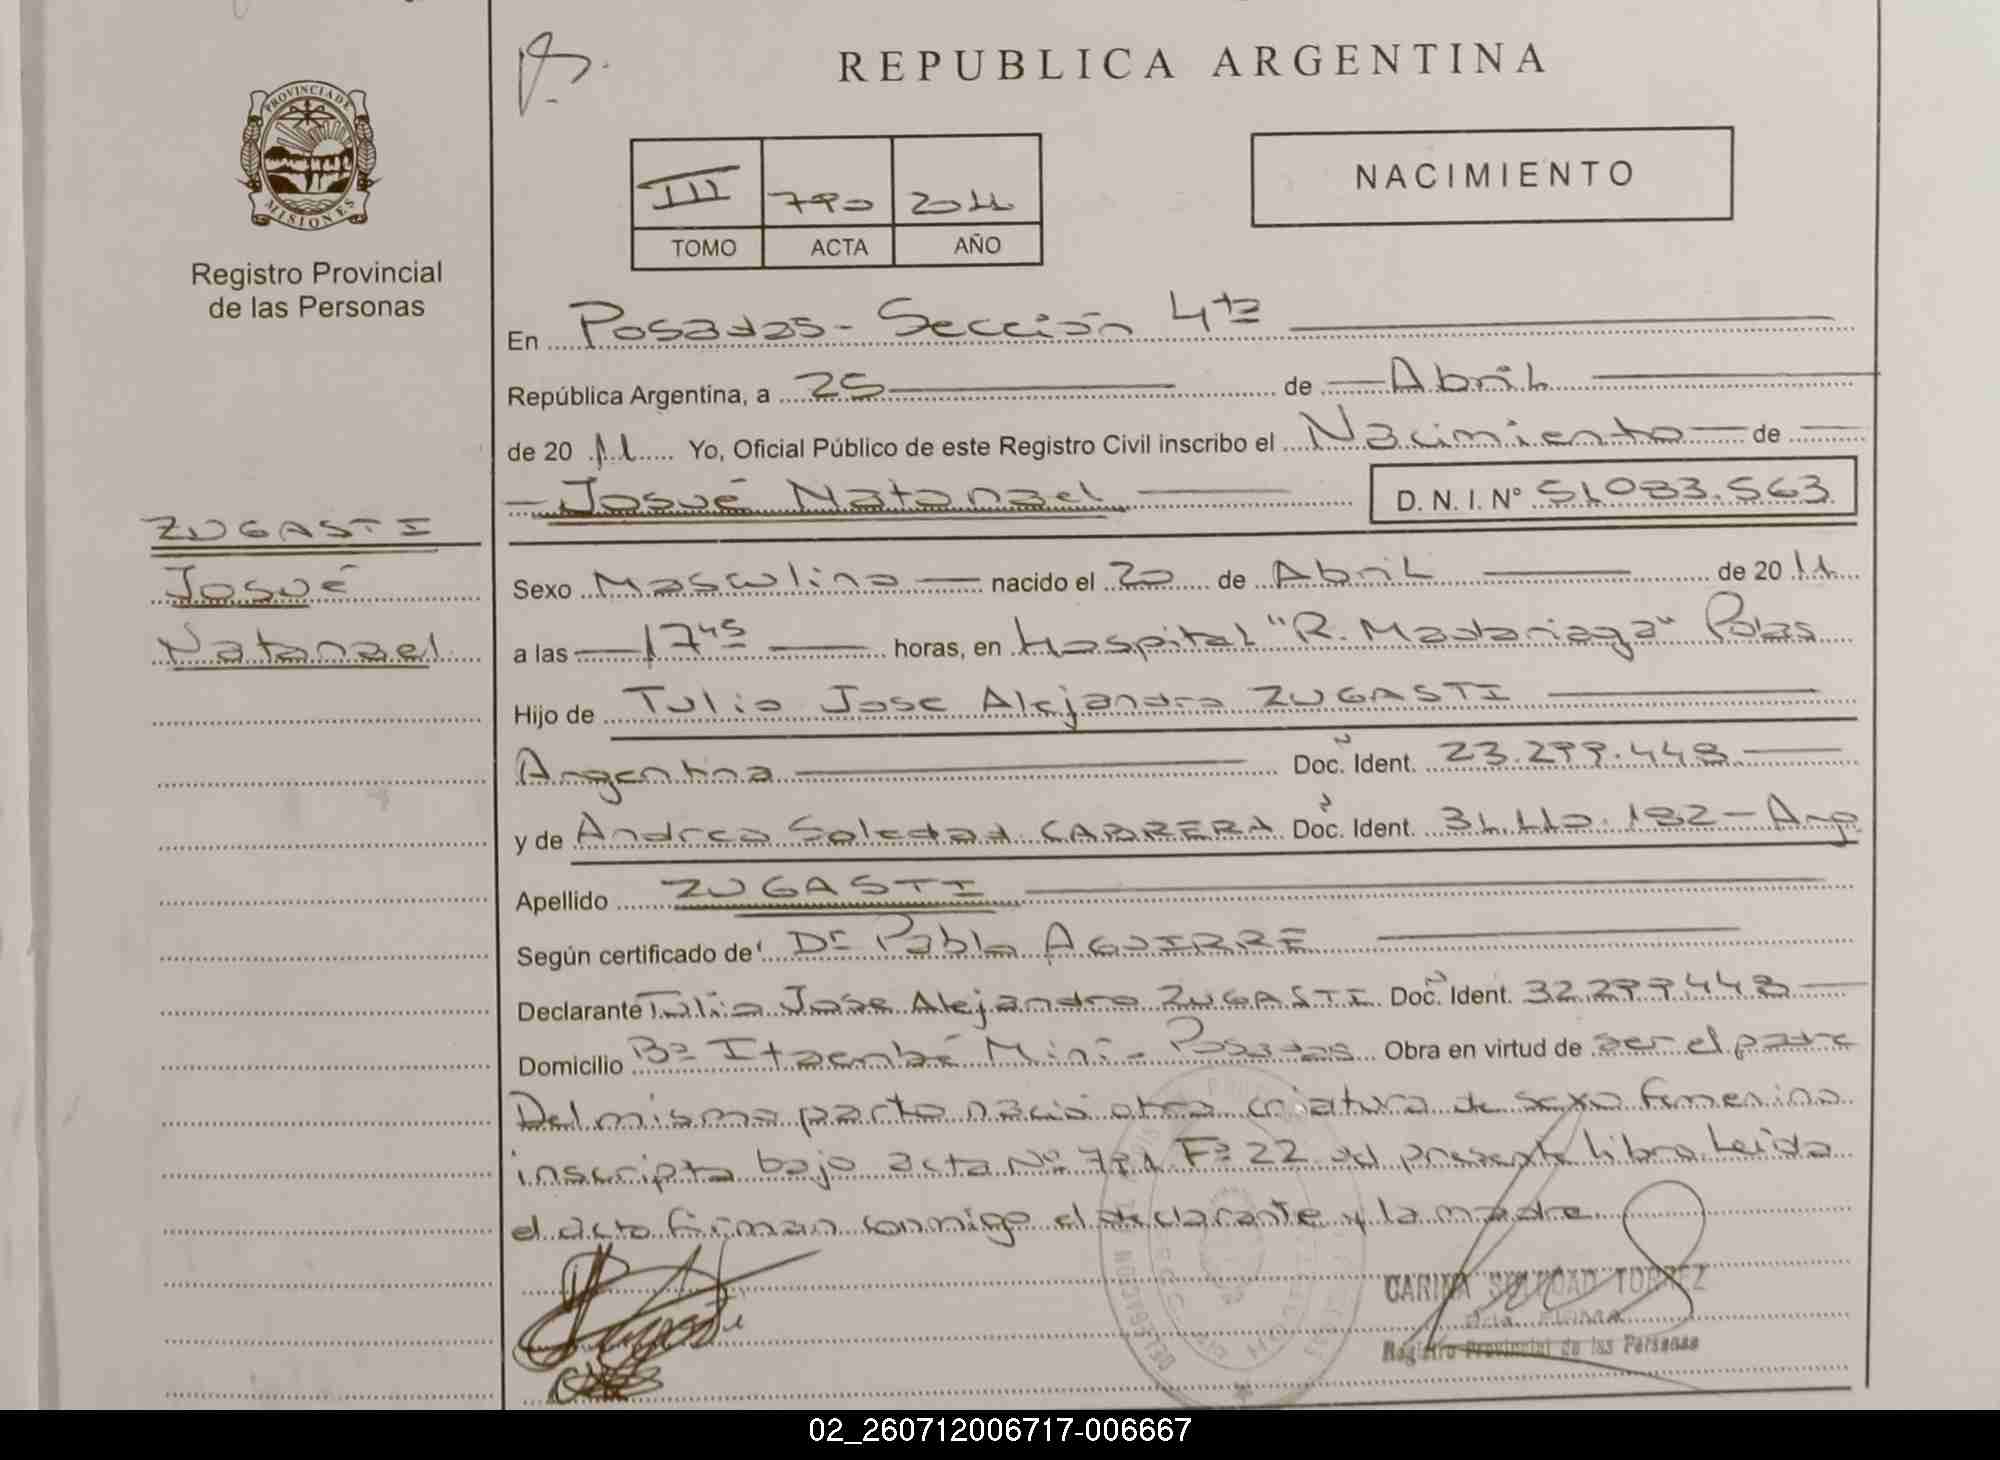 REPUBLICA ARGENTINA
PROVINCIA DE
MISIONES
Registro Provincial
de las Personas
III 790 2011
TOMO ACTA AÑO
NACIMIENTO
En Posadas - Sección 4ta
República Argentina, a 25 de Abril
de 20 11 Yo, Oficial Público de este Registro Civil inscribo el Nacimiento de
Josué Natanael D. N. I. N° 51083.563
ZUGASTI
Josué
Natanael
Sexo Masculino nacido el 20 de Abril de 20 11
a las 17 45 horas, en Hospital "R. Madariaga" Pdas
Hijo de Tulio Jose Alejandro ZUGASTI
Argentina Doc. Ident. 23.299.448
y de Andrea Soledad CABRERA Doc. Ident. 31.110.182 - Arg
Apellido ZUGASTI
Según certificado de Dr Pablo AGUIRRE
Declarante Tulio Jose Alejandro ZUGASTI Doc. Ident. 32.299.448
Domicilio Bº Itaembé Miní - Posadas Obra en virtud de ser el padre
Del mismo parto nació otra criatura de sexo femenino
inscripta bajo acta Nº 791 Fº 22 del presente libro. Leída
el acto firman conmigo el declarante y la madre
CARINA SOLEDAD TORREZ
Registro Provincial de las Personas
02_260712006717-006667